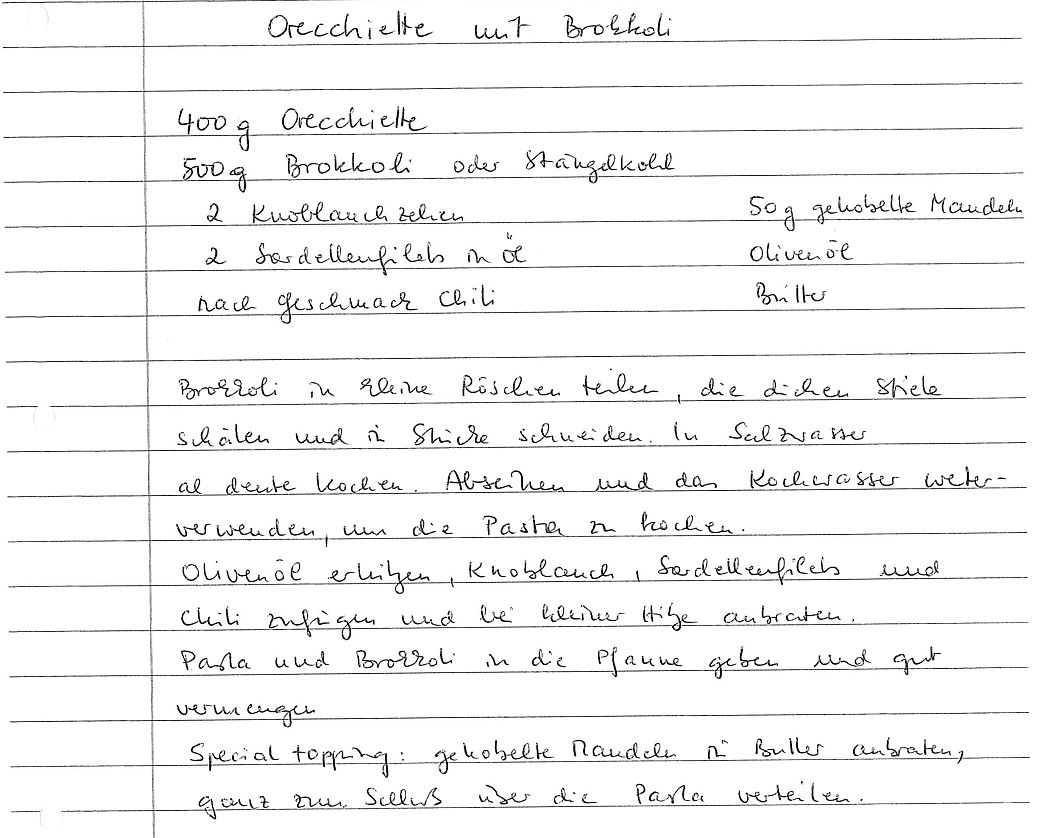 Orecchiette mit Brokkoli
400 g Orecchiette
500 g Brokkoli oder Stängelkohl
2 Knoblauchzehen 50 g gehobelte Mandeln
2 Sardellenfilets in Öl Olivenöl
nach Geschmack Chili Butter
Brokkoli in kleine Röschen teilen, die dicken Stiele
schälen und in Stücke schneiden. In Salzwasser
al dente kochen. Abseihen und das Kochwasser weiter-
verwenden, um die Pasta zu kochen.
Olivenöl erhitzen, Knoblauch, Sardellenfilets und
Chili zufügen und bei kleiner Hitze anbraten.
Pasta und Brokkoli in die Pfanne geben und gut
vermengen
Special topping: gehobelte Mandeln in Butter anbraten,
ganz zum Schluß über die Pasta verteilen.